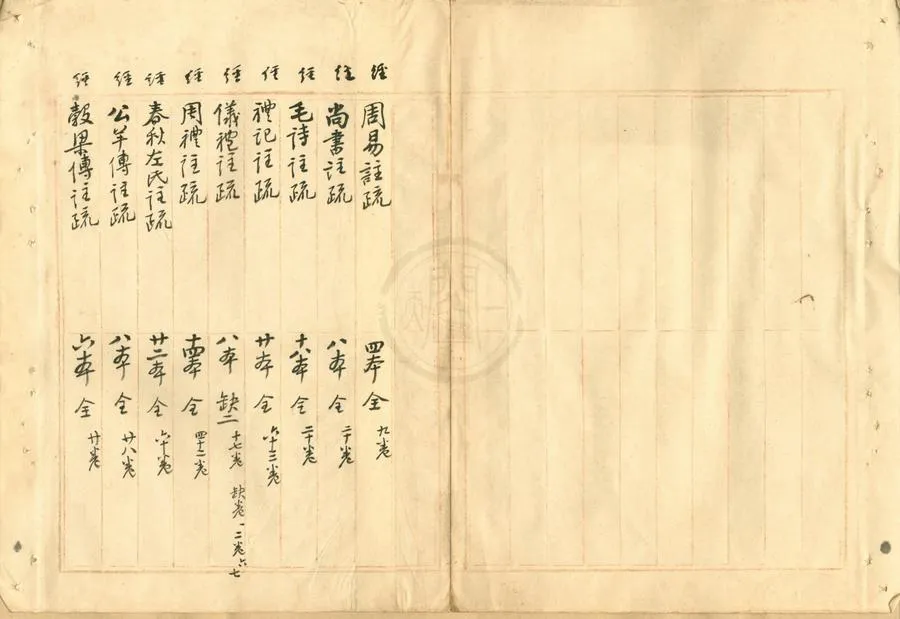 經 周易註疏 四本 全 九卷
經 尚書註疏 八本 全 二十卷
經 毛詩註疏 十八本 全 二十卷
經 禮記註疏 廿本 全 六十三卷
經 儀禮註疏 八本 缺二 十七卷 缺卷一二卷六七
經 周禮註疏 十四本 全 四十二卷
經 春秋左氏註疏 廿二本 全 六十卷
經 公羊傳註疏 八本 全 廿八卷
經 穀梁傳註疏 六本 全 廿卷